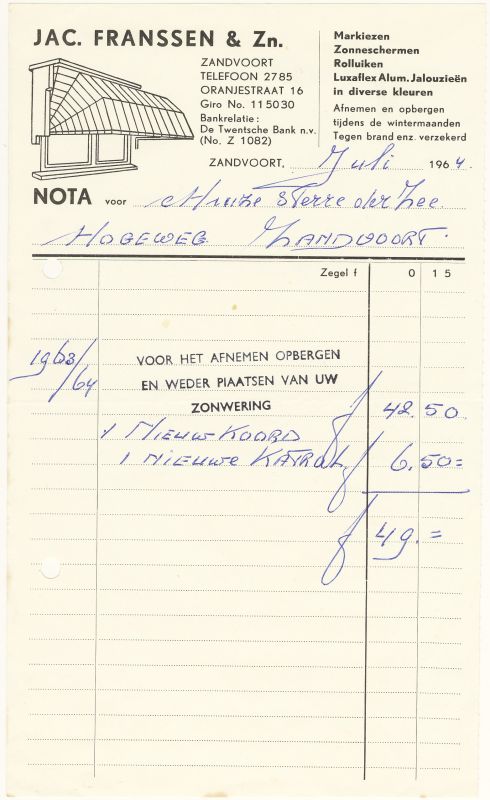 JAC. FRANSSEN & Zn.
ZANDVOORT
TELEFOON 2785
ORANJESTRAAT 16
Giro No. 115030
Bankrelatie:
De Twentsche Bank n.v.
(No. Z 1082)
Markiezen
Zonneschermen
Rolluiken
Luxaflex Alum. Jalouzieën
in diverse kleuren
Afnemen en opbergen
tijdens de wintermaanden
Tegen brand enz. verzekerd
ZANDVOORT, Juli 1964.
NOTA voor Huize Sterre der Zee
HOGEWEG ZANDVOORT.
Zegel f 0 15
1963/64
VOOR HET AFNEMEN OPBERGEN
EN WEDER PLAATSEN VAN UW
ZONWERING f 42.50
1 NIEUW KOORD
1 NIEUWE KATROL f 6.50=
f 49.=